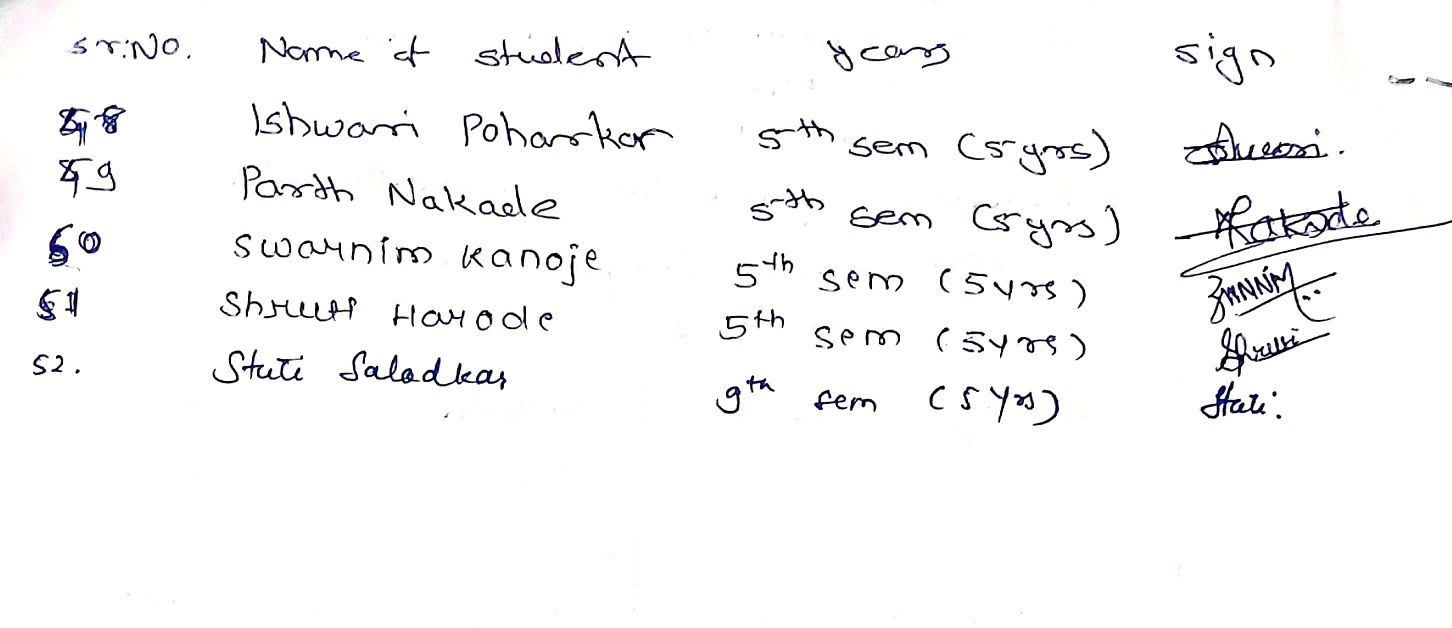 sr.No. Name of student years sign
48 Ishwari Poharkar 5th sem (5 yrs)
49 Parth Nakade 5th sem (5 yrs) Nakade
50 Swarnim Kanoje 5th sem (5 yrs)
51 Shruti Harode 5th sem (5 yrs) Shruti
52. Stuti Saladkar 9th sem (5 Yrs) Stuti